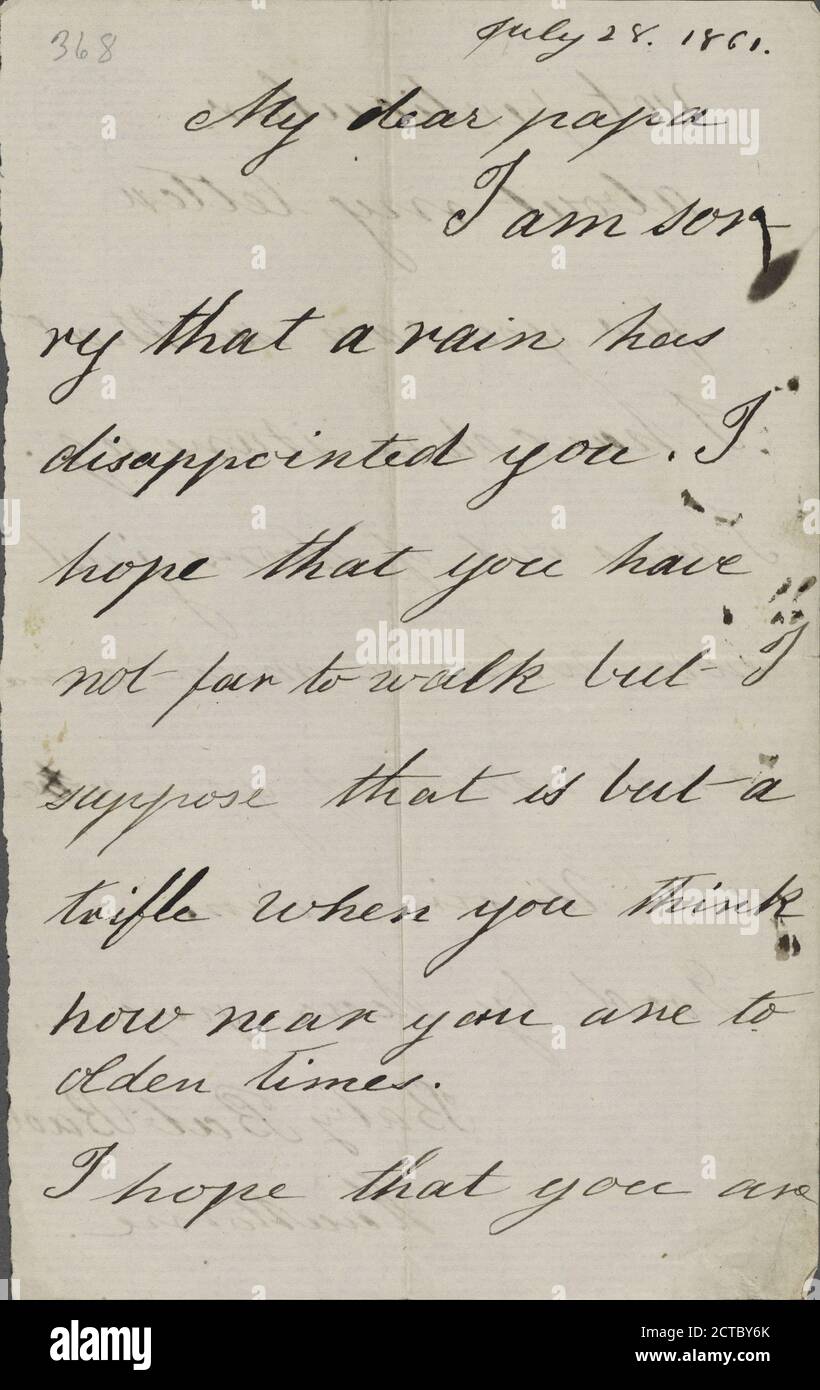 368
July 28. 1861.
My dear papa
I am sor-
ry that a rain has
disappointed you. I
hope that you have
not far to walk but I
suppose that is but a
trifle when you think
how near you are to
olden times.
I hope that you are
alamy
alamy
Image ID: 2CTBY6K
www.alamy.com